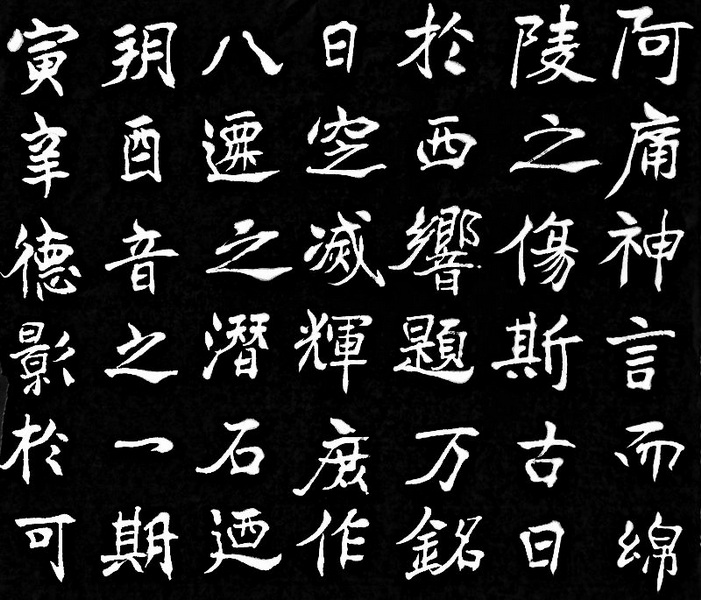 阿痛神言而綿
陵之傷斯古日
於西響題万銘
日空滅輝庶作
八遷之潛石迺
朔酉音之一期
寅辛德影於可